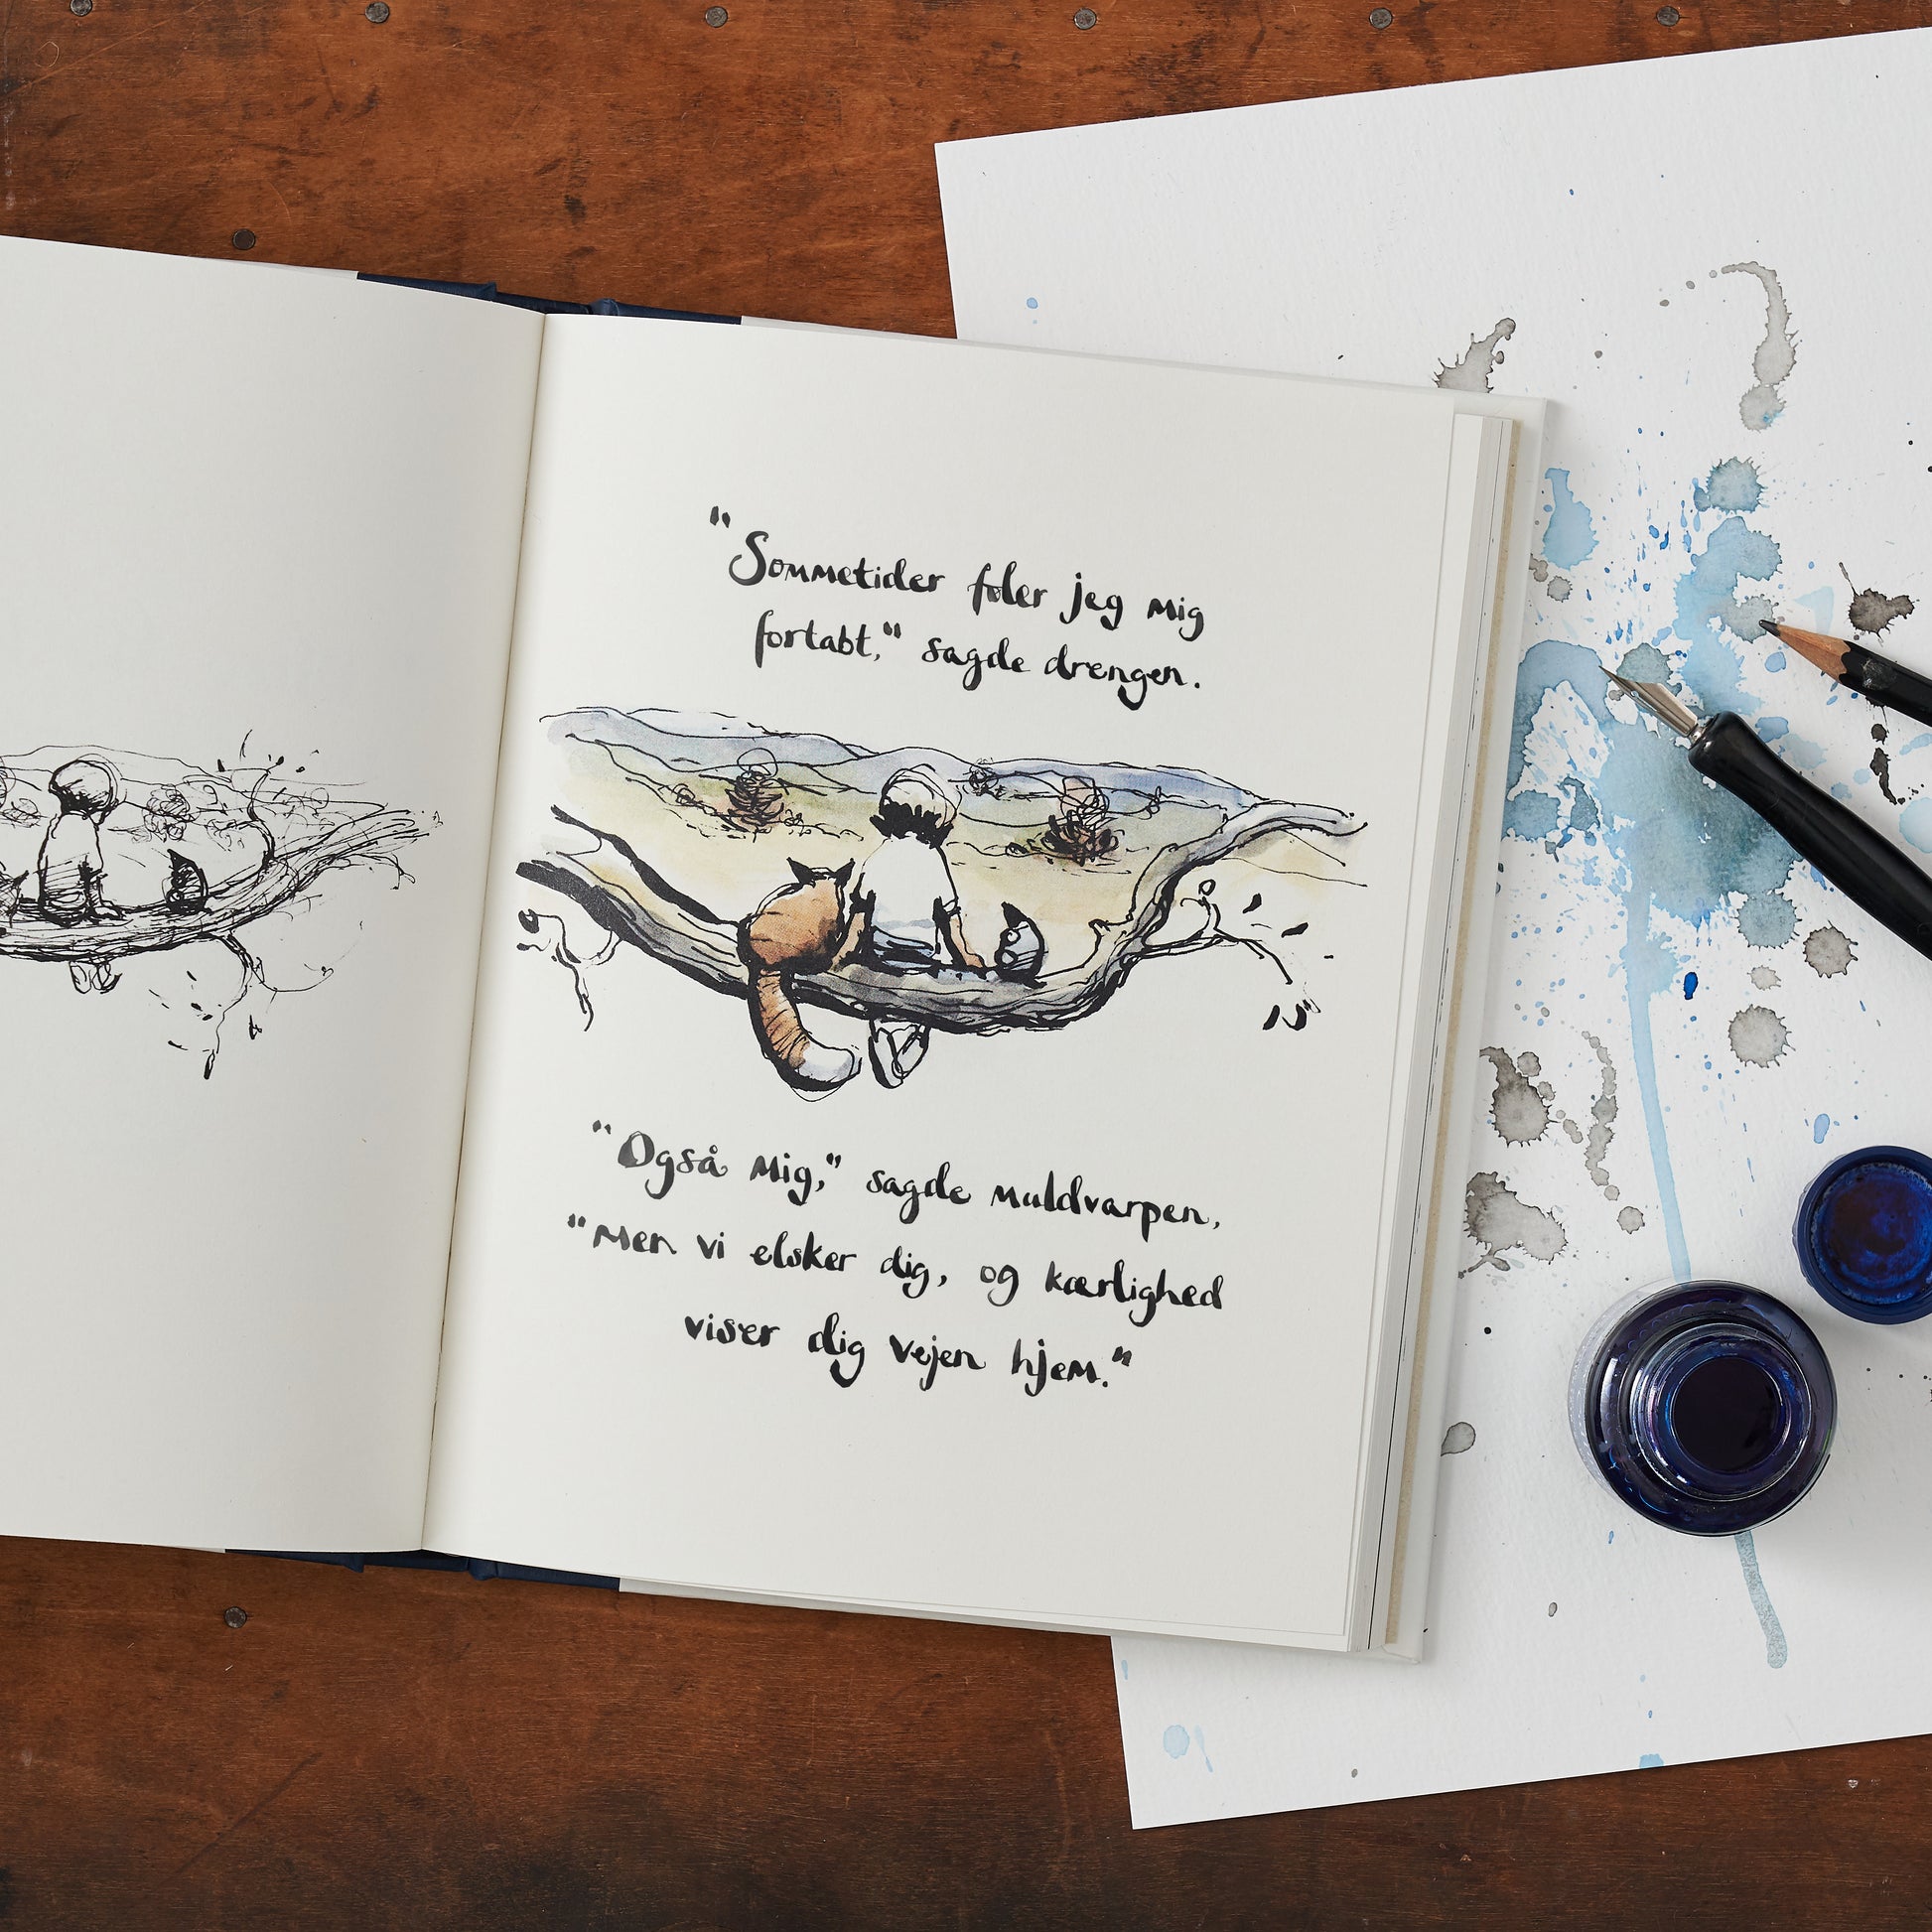 "Sommetider føler jeg mig
fortabt," sagde drengen.
"Også mig," sagde muldvarpen,
"Men vi elsker dig, og kærlighed
viser dig vejen hjem."